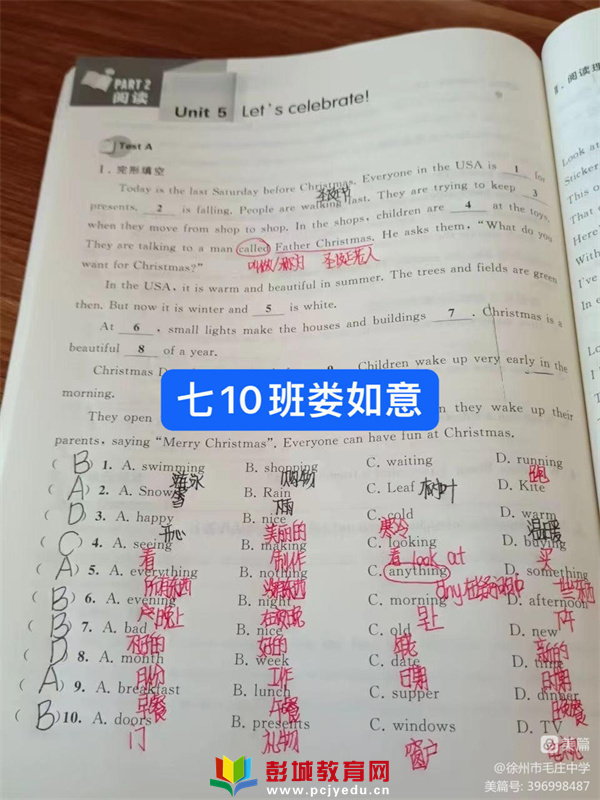 PART 2
阅读
Unit 5 Let's celebrate!
Test A
Ⅰ. 完形填空
Today is the last Saturday before Christmas. Everyone in the USA is 1 for
圣诞节
presents. 2 is falling. People are walking fast. They are trying to keep 3
when they move from shop to shop. In the shops, children are 4 at the toys.
They are talking to a man called Father Christmas. He asks them, "What do you
want for Christmas?"
叫做/ 圣诞老人
In the USA, it is warm and beautiful in summer. The trees and fields are green
then. But now it is winter and 5 is white.
At 6 , small lights make the houses and buildings 7 . Christmas is a
beautiful 8 of a year.
Christmas D 9 . Children wake up very early in the
morning.
七10班娄如意
They open n they wake up their
parents, saying "Merry Christmas". Everyone can have fun at Christmas.
(B) 1. A. swimming B. shopping C. waiting D. running
游泳 购物 跑
(A) 2. A. Snow B. Rain C. Leaf 树叶 D. Kite
雪 雨
(D) 3. A. happy B. nice C. cold D. warm
开心 美丽的 寒冷 温暖
(C) 4. A. seeing B. making C. looking D. buying
看 制作 看 look at 买
(A) 5. A. everything B. nothing C. anything D. something
所有东西 没有东西 any在
(B) 6. A. evening B. night C. morning D. afternoon
晚上 在夜晚 早上 下午
(B) 7. A. bad B. nice C. old D. new
不好的 好的 新的
(D) 8. A. month B. week C. date D. time
日期
(A) 9. A. breakfast B. lunch C. supper D. dinner
早餐 午餐 晚餐
(B) 10. A. doors B. presents C. windows D. TV
门 礼物 窗户 电视
Ⅱ. 阅读理
Look at
Sticker
This
That o
Here'
With
I'm
彭城教育网
www.pcjyedu.cn
美篇
@徐州市毛庄中学
美篇号: 396998487